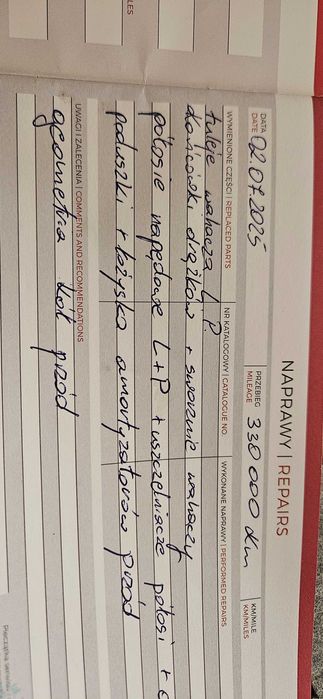 LES
NAPRAWY | REPAIRS
DATA
DATE
02.07.2025
PRZEBIEG
MILEAGE
338 000 km
KM/MILE
KM/MILES
WYMIENIONE CZĘŚCI | REPLACED PARTS
NR KATALOGOWY | CATALOGUE NO.
WYKONANE NAPRAWY | PERFORMED REPAIRS
tuleje wahacza L P
końcówki drążków + sworznie wahaczy
półosie napędowe L+P + uszczelniacze półosi +
poduszki + łożyska amortyzatorów przód
UWAGI I ZALECENIA | COMMENTS AND RECOMMENDATIONS
geometria kół przód